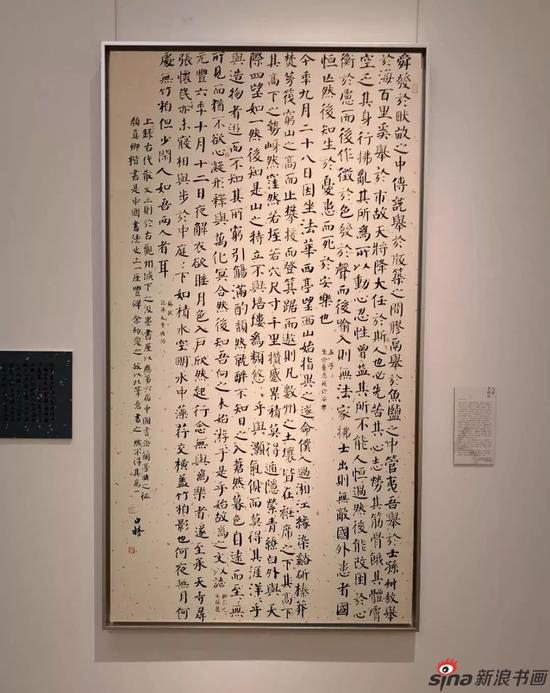 舜發於畎畝之中傅說舉於版築之間膠鬲舉於魚鹽之中管夷吾舉於士孫叔敖舉
於海百里奚舉於市故天將降大任於斯人也必先苦其心志勞其筋骨餓其體膚
空乏其身行拂亂其所為所以動心忍性曾益其所不能人恒過然後能改困於心
衡於慮而後作徵於色發於聲而後喻入則無法家拂士出則無敵國外患者國
恒亡然後知生於憂患而死於安樂也
孟子
生於憂患死於安樂
今年九月二十八日因坐法華西亭望西山始指異之遂命僕人過湘江緣染溪斫榛莽
焚茅筏窮山之高而止攀援而登箕踞而遨則凡數州之土壤皆在衽席之下其高下
其高下之勢岈然窪然若垤若穴尺寸千里攢蹙累積莫得遁隱縈青繚白外與天
際四望如一然後知是山之特立不與培塿為類悠〻乎與灝氣俱而莫得其涯洋〻乎
與造物者遊而不知其所窮引觴滿酌頹然就醉不知日之入蒼然暮色自遠而至〻無
所見而猶不欲心凝形釋與萬化冥合然後知吾向之未始游〻於是乎始故為之文以誌
元豐六年十月十二日夜解衣欲睡月色入戶欣然起行念無與為樂者遂至承天寺尋
張懷民亦未寢相與步於中庭〻下如積水空明水中藻荇交橫蓋竹柏影也何夜無月何
處無竹柏但少閑人如吾兩人者耳
蘇軾
記承天寺夜游
上錄古代散文三則於古觀州城下之汲墨書屋以應第六屆中國書法蘭亭獎之征
顏真卿楷書是中國書法史上一座豐碑余初愛之故以此筆意書之然不得其萬一
sina新浪书画